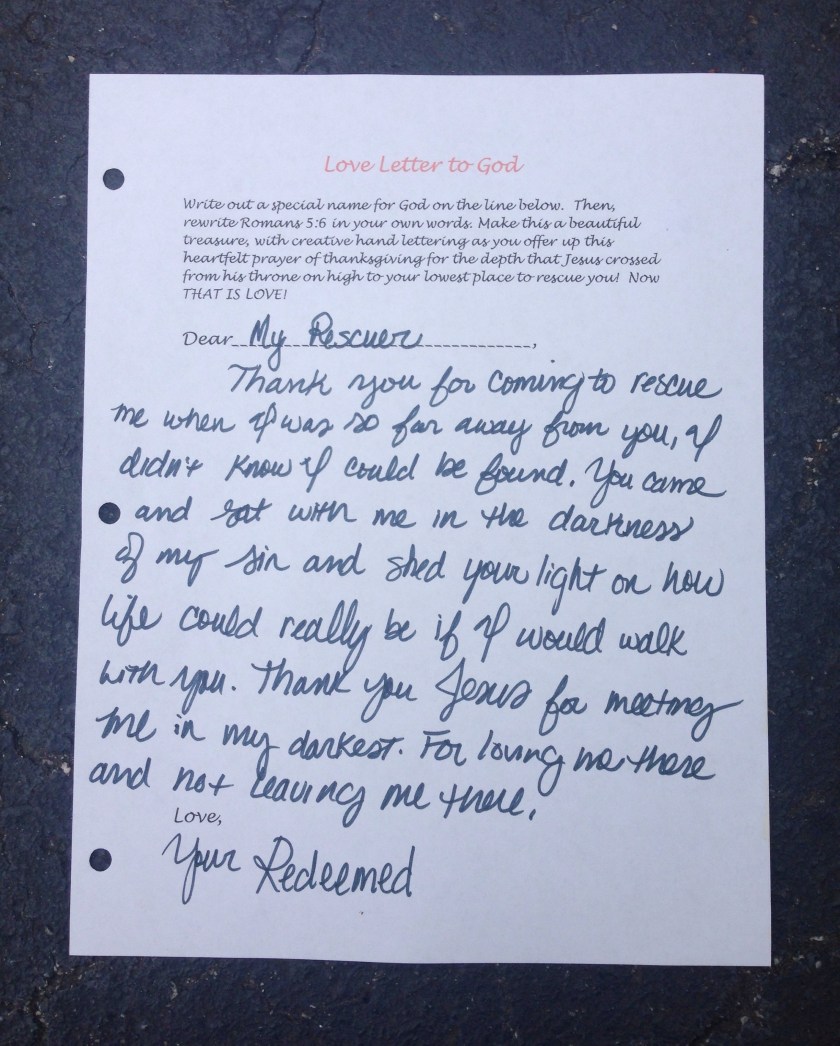 Love Letter to God
Write out a special name for God on the line below. Then,
rewrite Romans 5:6 in your own words. Make this a beautiful
treasure, with creative hand lettering as you offer up this
heartfelt prayer of thanksgiving for the depth that Jesus crossed
from his throne on high to your lowest place to rescue you! Now
THAT IS LOVE!
Dear My Rescuer,
Thank you for coming to rescue
me when I was so far away from you, I
didn't know I could be found. You came
and sat with me in the darkness
of my sin and shed your light on how
life could really be if I would walk
with you. Thank you Jesus for meeting
me in my darkest. For loving me there
and not leaving me there.
Love,
Your Redeemed